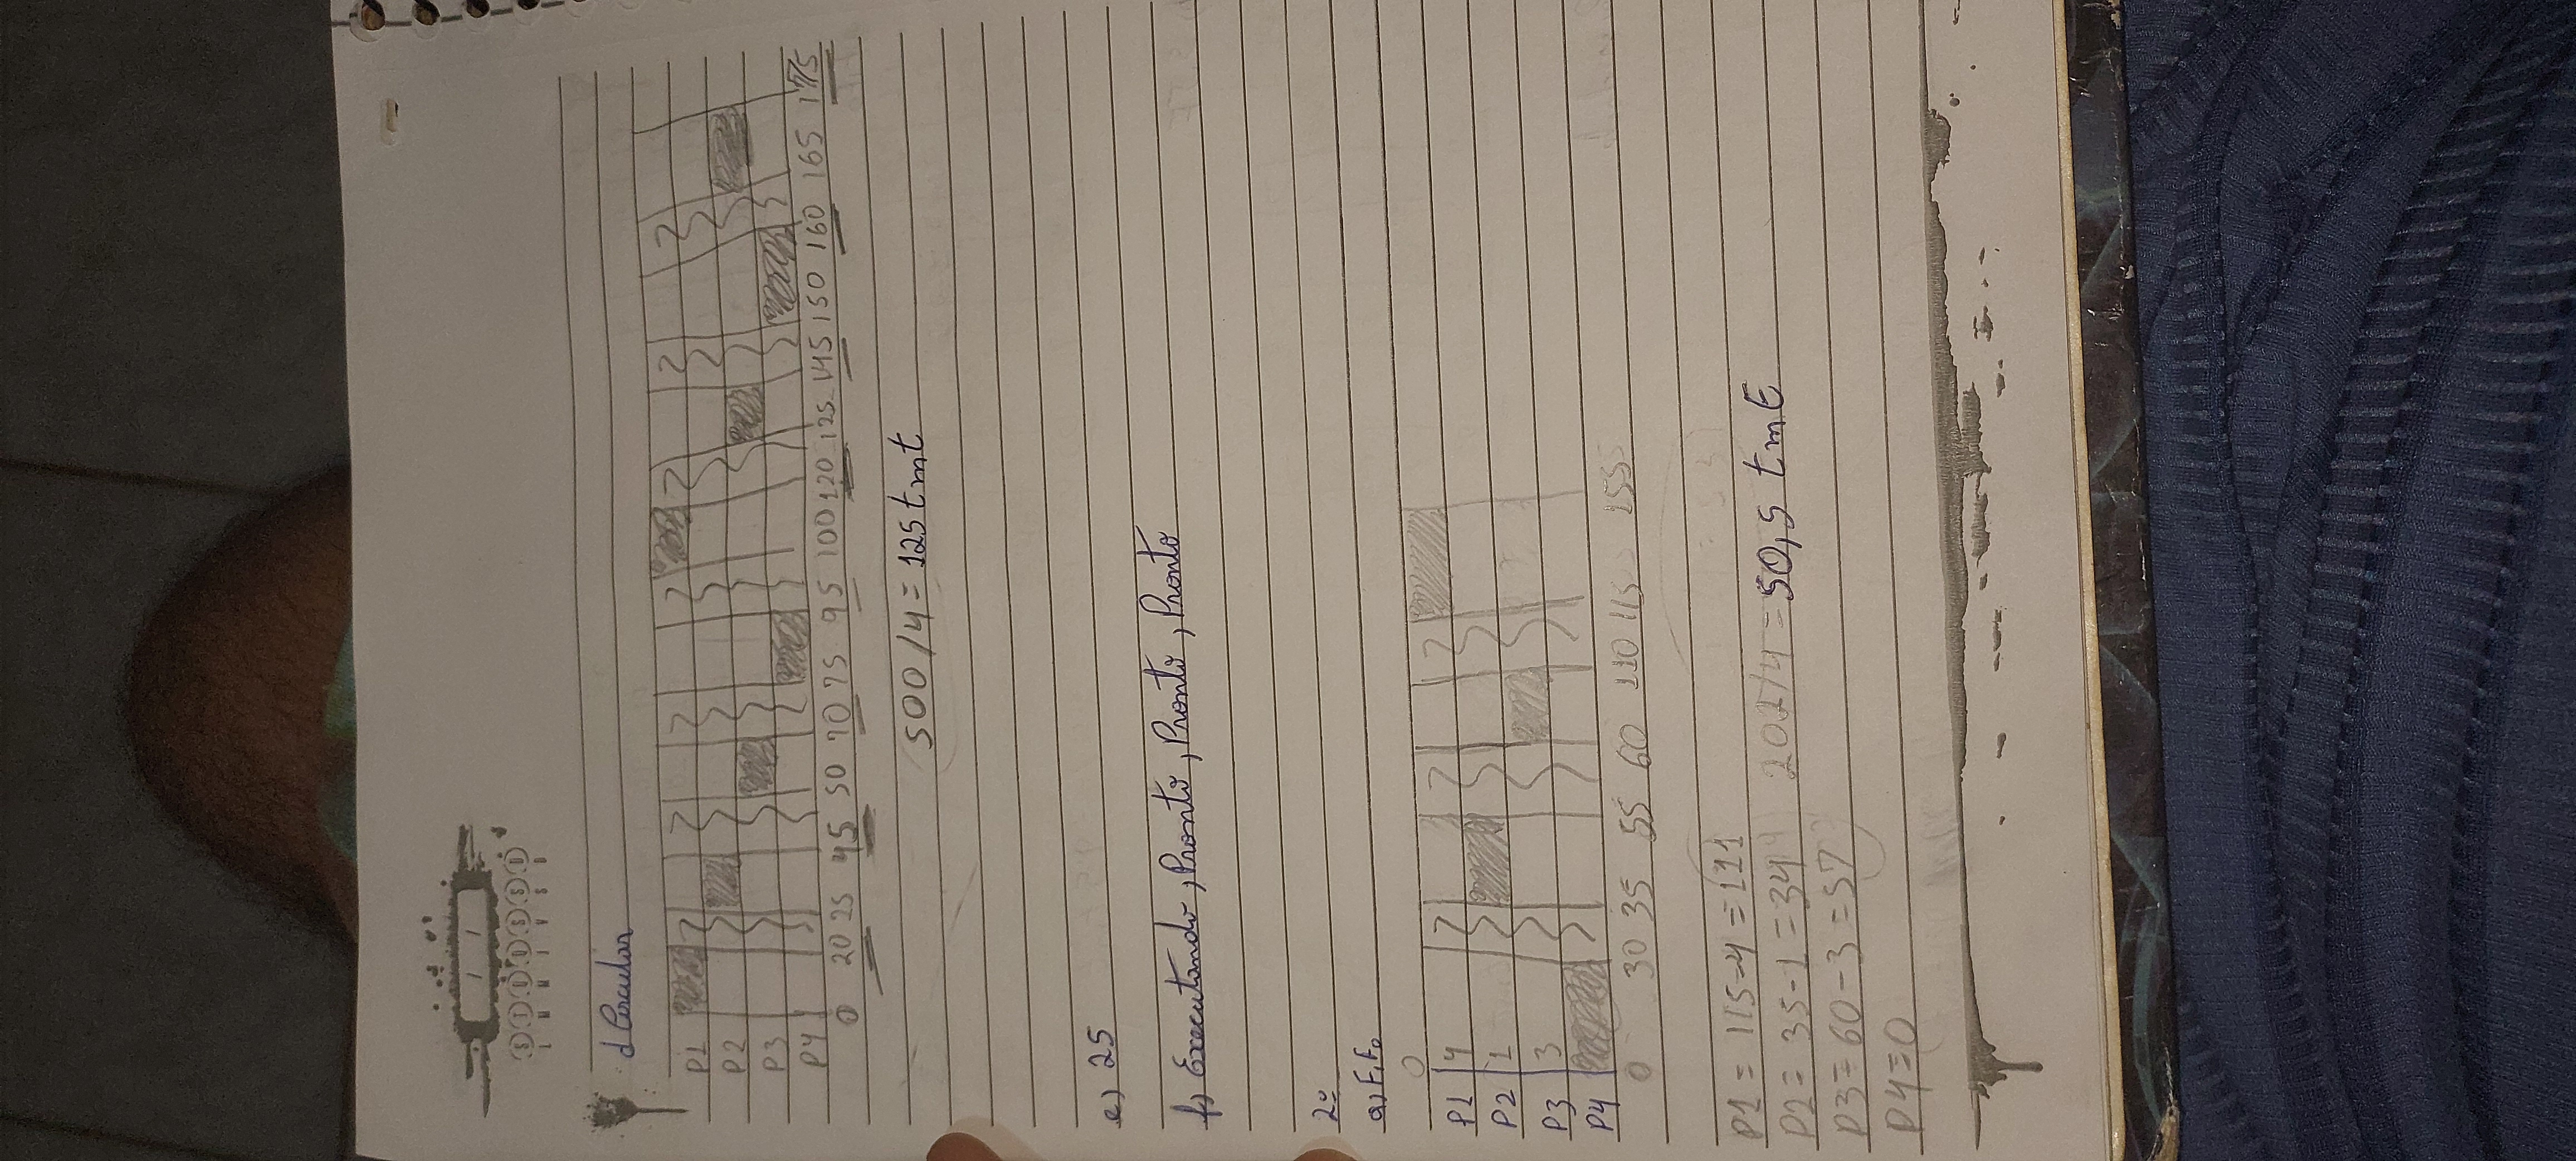 / /
S T Q Q S S D
L M M J V S D
d Circular
P1
P2
P3
P4
0 20 25 45 50 70 75 95 100 120 125 145 150 160 165 175
500/4 = 125 tmt
e) 25
f) Executando, Pronto, Pronto, Pronto
2º
a) F,Fo
0
P1 4
P2 1
P3 3
P4
0 30 35 55 60 110 115 155
P1 = 115-4 = 111
P2 = 35-1 = 34 202/4 = 50,5 tmE
P3 = 60-3 = 57
P4 = 0